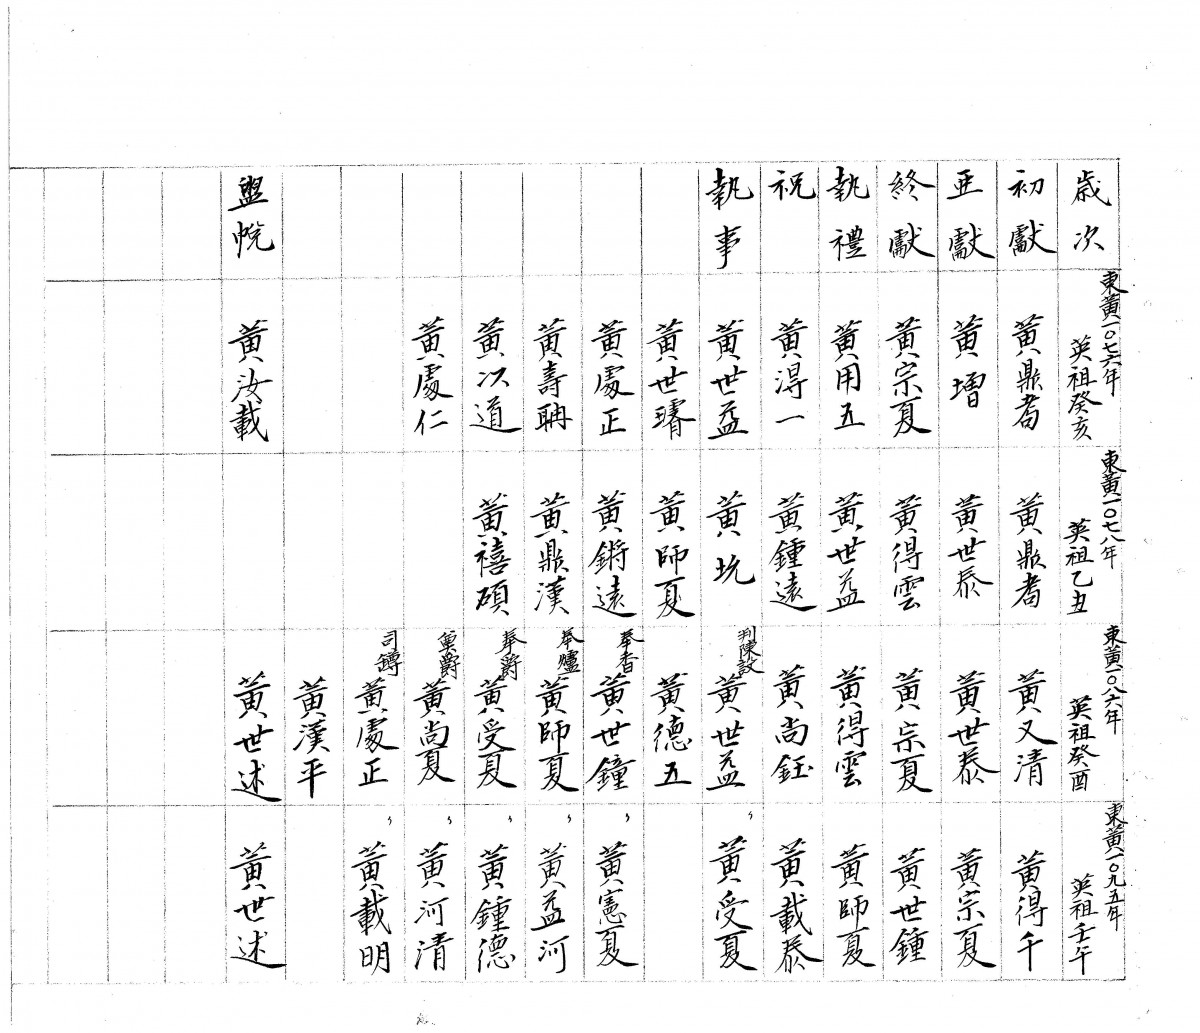 歳次
東黃一〇七六年
英祖癸亥
東黃一〇七八年
英祖乙丑
東黃一〇八六年
英祖癸酉
東黃一〇九五年
英祖壬午
初獻
黃鼎耉
黃鼎耉
黃又清
黃得千
亞獻
黃增
黃世泰
黃世泰
黃宗夏
終獻
黃宗夏
黃得雲
黃宗夏
黃世鍾
執禮
黃用五
黃世益
黃得雲
黃師夏
祝
黃得一
黃鍾遠
黃尚鈺
黃載泰
執事
黃世益
黃坑
判陳設
黃世益
〃
黃受夏
黃世璿
黃師夏
黃德五
黃處正
黃鏘遠
奉香
黃世鐘
〃
黃憲夏
黃壽聃
黃鼎漢
奉爐
黃師夏
〃
黃益河
黃次道
黃禧碩
奉爵
黃受夏
〃
黃鍾德
黃處仁
奠爵
黃尚夏
〃
黃河清
司罇
黃處正
〃
黃載明
黃漢平
盥帨
黃汝載
黃世述
黃世述